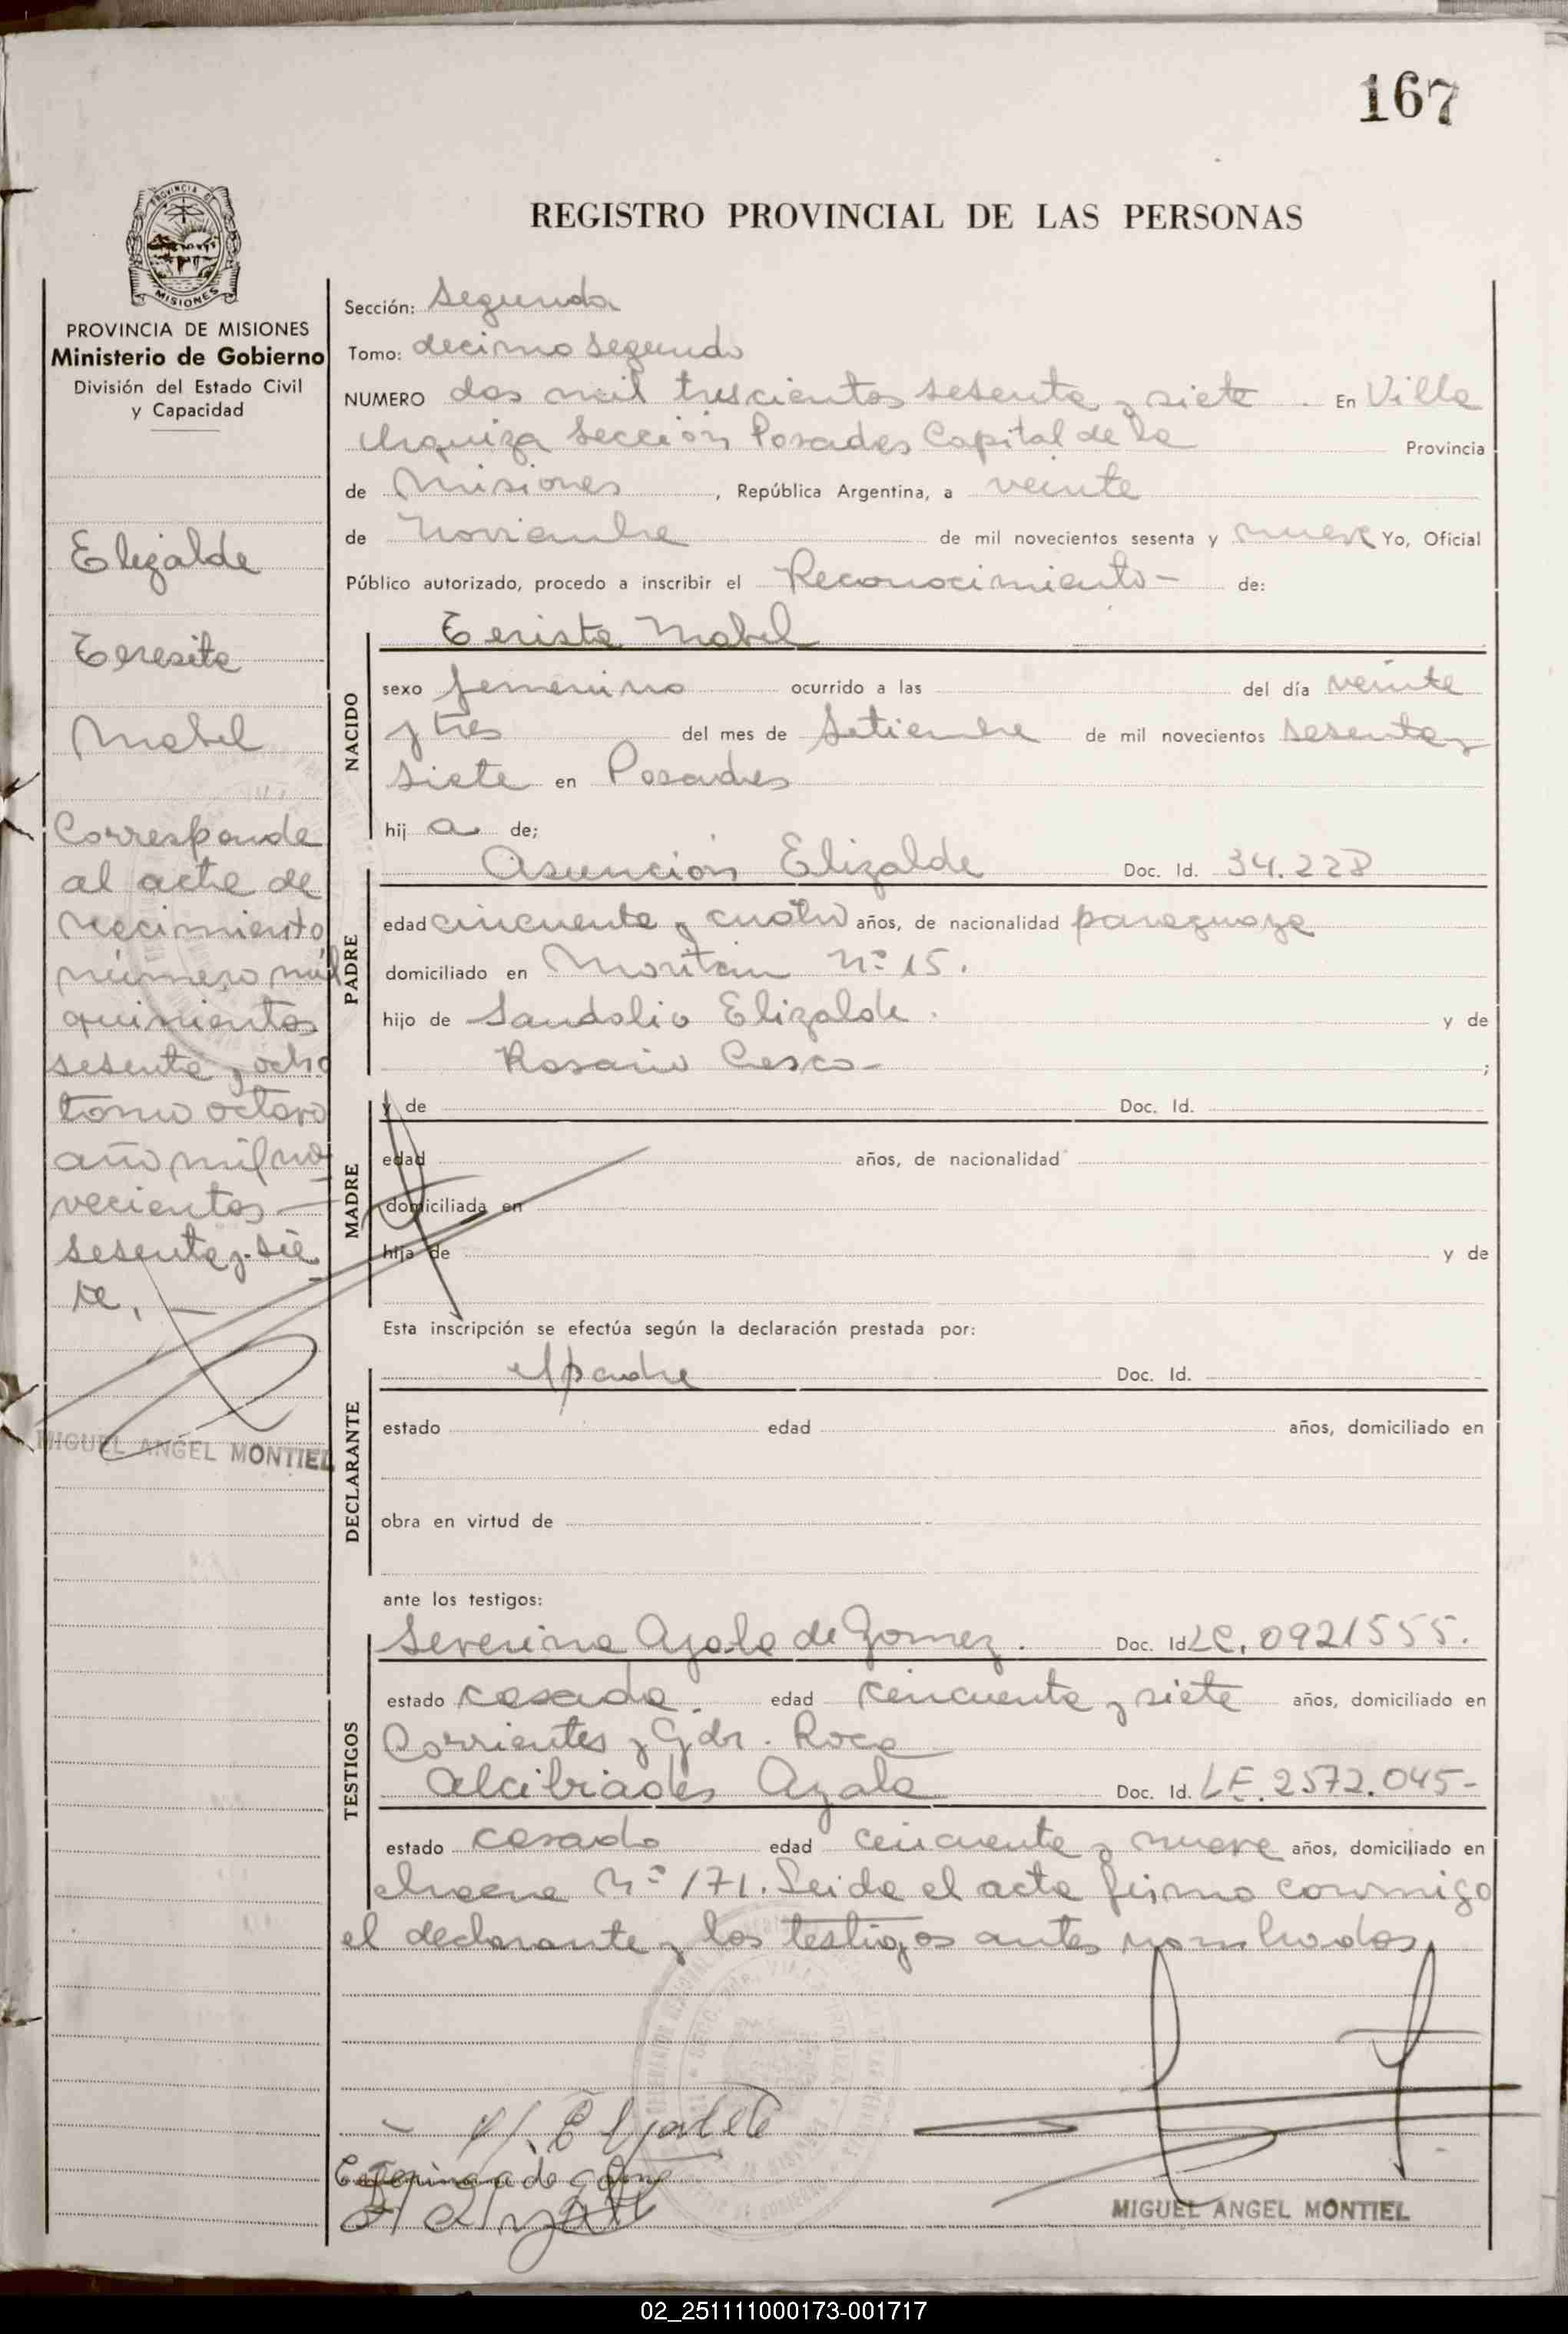 167
REGISTRO PROVINCIAL DE LAS PERSONAS
PROVINCIA DE
MISIONES
PROVINCIA DE MISIONES
Ministerio de Gobierno
División del Estado Civil
y Capacidad
Elizalde
Teresita
Mabel
Corresponde
al acta de
nacimiento
número mil
quinientos
sesenta y ocho
tomo octavo
año mil no
vecientos
sesenta y sie
te.
MIGUEL ANGEL MONTIEL
Sección: Segunda
Tomo: decimo segundo
NUMERO dos mil trescientos sesenta y siete. En Villa
Urquiza Sección Posadas Capital de la Provincia
de Misiones, República Argentina, a veinte
de Noviembre de mil novecientos sesenta y nueve Yo, Oficial
Público autorizado, procedo a inscribir el Reconocimiento - de:
Terista Mabel
NACIDO
sexo femenino ocurrido a las del día veinte
y tres del mes de Setiembre de mil novecientos sesenta y
siete en Posadas
hij a de;
Asunción Elizalde Doc. Id. 34.228
PADRE
edad cincuenta y cuatro años, de nacionalidad paraguaya
domiciliado en Nº 15.
hijo de Sandalio Elizalde. y de
Rosario ;
MADRE
y de Doc. Id.
edad años, de nacionalidad
domiciliada en
hija de y de
Esta inscripción se efectúa según la declaración prestada por:
el padre Doc. Id.
DECLARANTE
estado edad años, domiciliado en
obra en virtud de
ante los testigos:
TESTIGOS
Severina Ayala de Gomez. Doc. Id LC. 0921555.
estado casada. edad cincuenta y siete años, domiciliado en
Corrientes y Gdr. Roca
Alcibiades Ayala Doc. Id. LE. 2572.045-
estado casado edad cincuenta y nueve años, domiciliado en
chacra Nº 171. Leida el acta firma conmigo
el declarante y los testigos antes nombrados
MIGUEL ANGEL MONTIEL
02_251111000173-001717